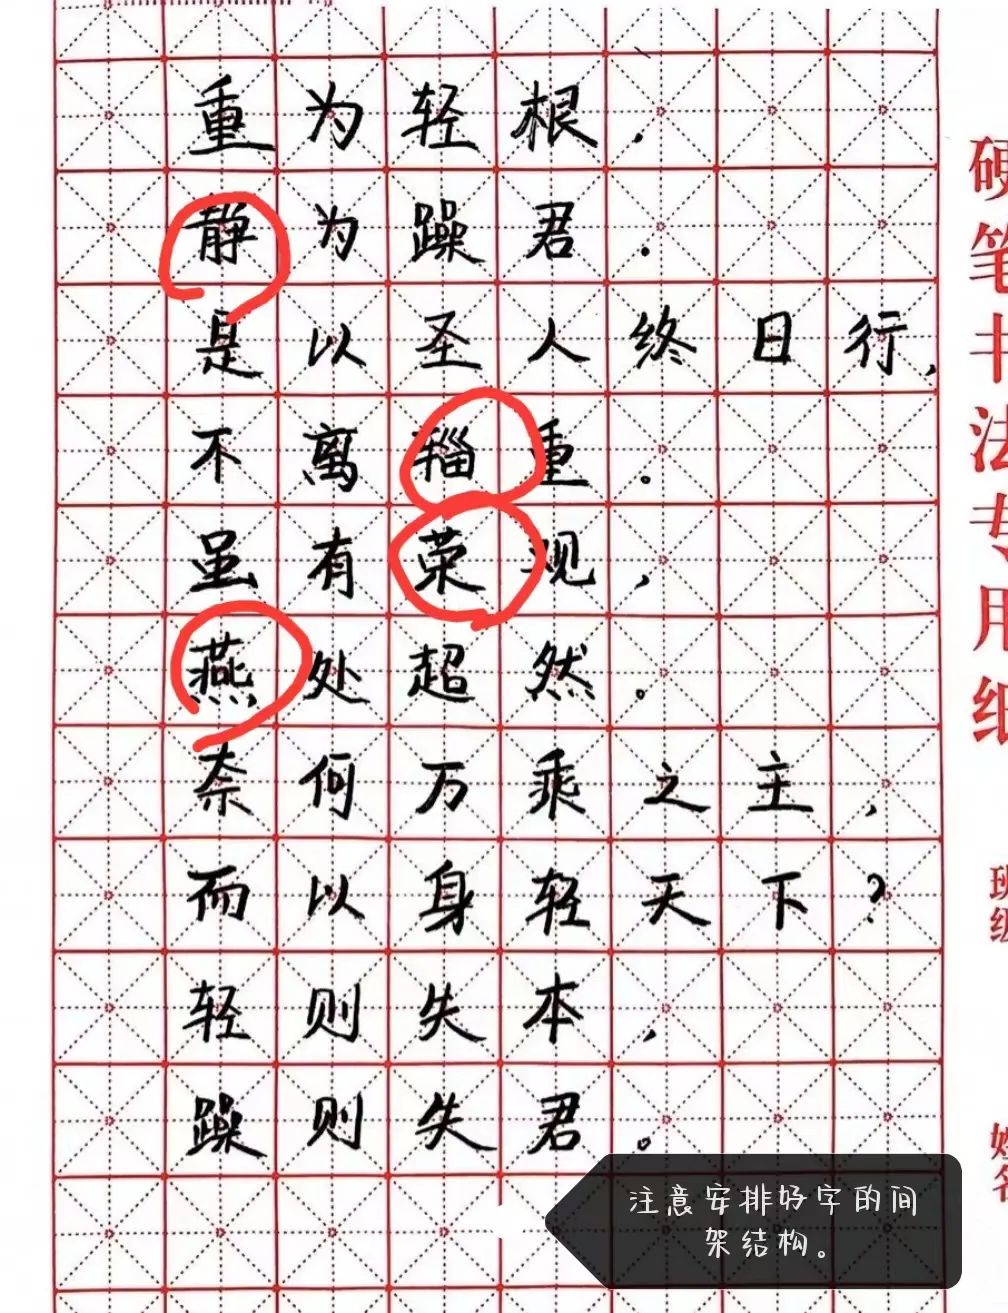 重为轻根，
静为躁君．
是以圣人终日行，
不离辎重。
虽有荣观，
燕处超然。
奈何万乘之主，
而以身轻天下？
轻则失本，
躁则失君。
硬笔书法专用纸
班级
姓名
注意安排好字的间
架结构。